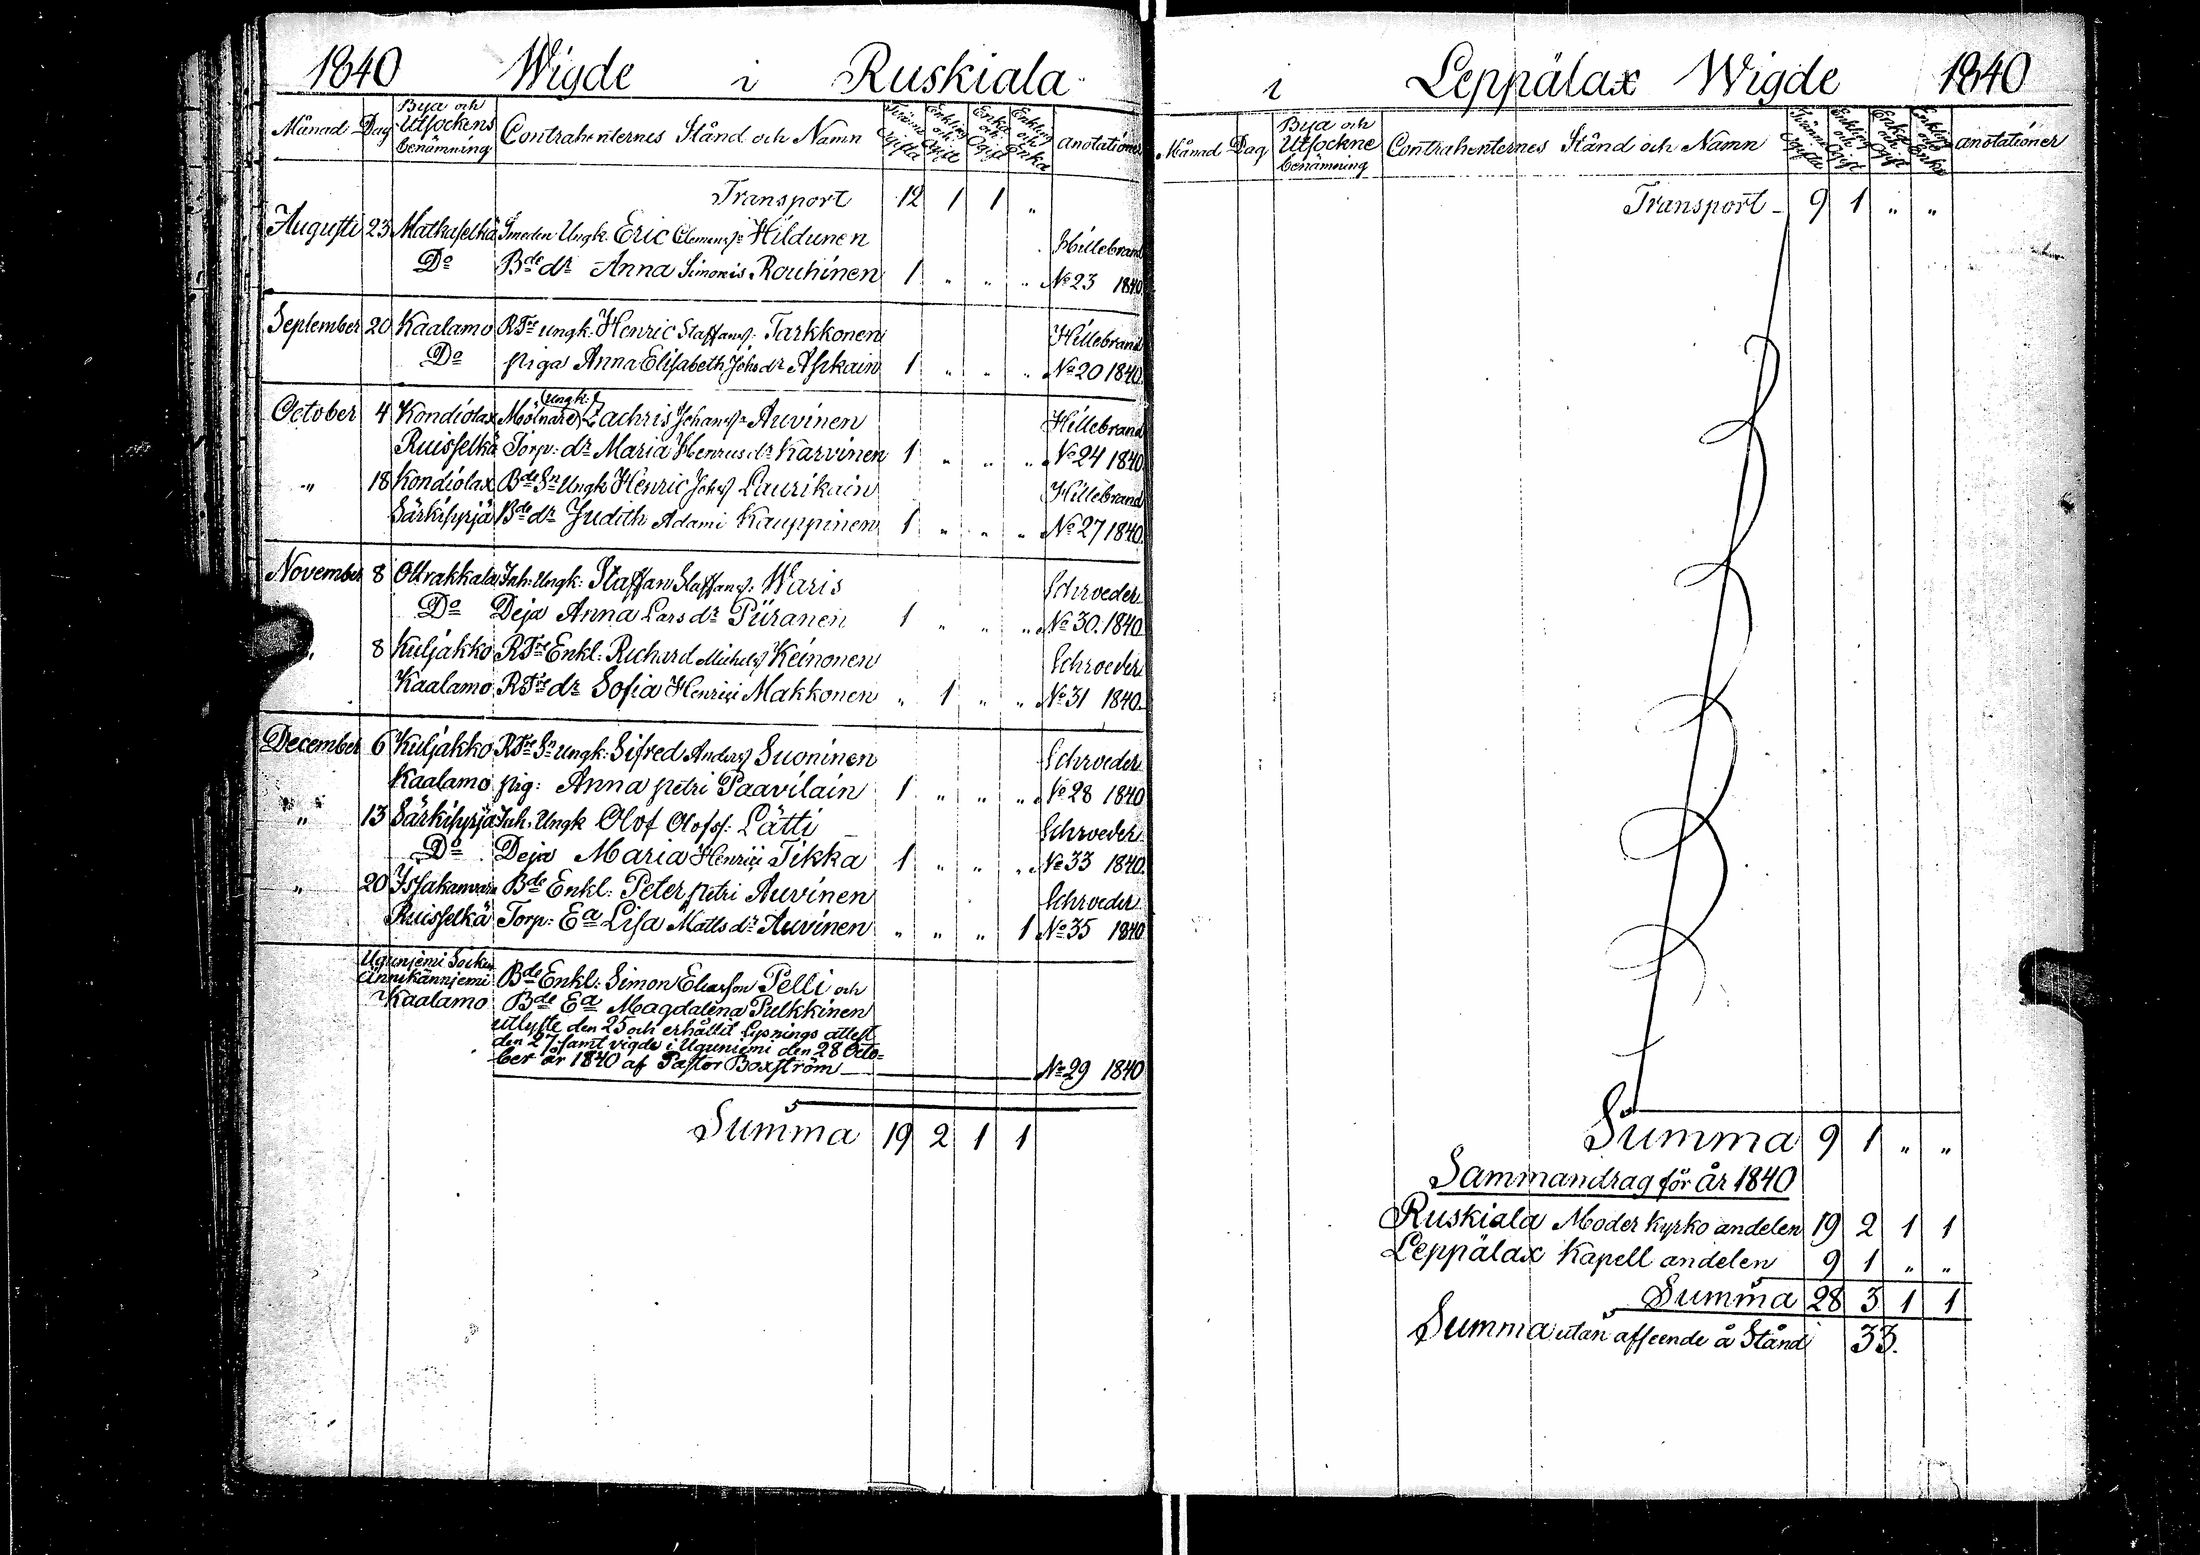 1840 Wigde i Ruskiala
Månad Dag Bya och Utsockens benämning Contrahenternes Stånd och Namn Enkling och Ogift Enka och Ogift Enkling och Enka anotationer
Transport 12 1 1 "
Augusti 23 Matkaselkä Smeden Ungk. Eric Clemenss. Hildunen Hillebrand
Do Bde dr Anna Simonis Rouhinen 1 " " " No 23 1840.
September 20 Kaalamo RTre ungk: Henric Staffanss: Tarkkonen Hillebrand
Do piga Anna Elisabeth Johs dr Asikain 1 " " " No 20 1840.
October 4 Kondiolax Mölnare (ungk:) Zachris Johanss. Auvinen Hillebrand
Ruisselkä Torp: dr Maria Henricsdr Karvinen 1 " " " No 24 1840
" 18 Kondiolax Bde Sn Ungk Henric Johss Laurikain Hillebrand
Särkisyrjä Bde dr Judith Adami Kauppinen 1 " " " No 27 1840.
November 8 Otrakkala Inh: Ungk: Staffan Staffanss: Waris Schroeder
Do Deja Anna Lars dr Piiranen 1 " " " No 30. 1840
" 8 Kuljakko RTre Enkl: Richard Michelss Keinonen Schroeder
Kaalamo RTre dr Sofia Henrici Makkonen " 1 " " No 31 1840.
December 6 Kuljakko RTre Sn ungk: Sifred Anderss Suoninen Schroeder
Kaalamo pig: Anna petri Paavilain 1 " " " No 28 1840
" 13 Särkisyrjä Inh: Ungk Olof Olofss: Lätti Schroeder
Do Deja Maria Henrici Tikka 1 " " " No 33 1840.
" 20 Issakanvara Bde Enkl: Peter petri Auvinen Schroeder
Ruisselkä Torp: Ea Lisa Matts dr Auvinen " " " 1 No 35 1840
Ugunjemi Socken
Annikänniemi Bde Enkl: Simon Eliasson Pelli och
Kaalamo Bde Ea Magdalena Pulkkinen
utlyste den 25 och erhållit Lysnings attest
den 27 samt vigde i Uguniemi den 28 Octo-
ber år 1840 af Pastor Boxström No 29 1840
Summa 19 2 1 1
i Leppälax Wigde 1840
Månad Dag Bya och Utsockne benämning Contrahenternes Stånd och Namn Enkling och Ogift Enka och Ogift Enkling och Enka anotationer
Transport 9 1 " "
Summa 9 1 " "
Sammandrag för år 1840
Ruskiala Moder kyrko andelen 19 2 1 1
Leppälax Kapell andelen 9 1 " "
Summa 28 3 1 1
Summa utan afseende å Stånd 33.